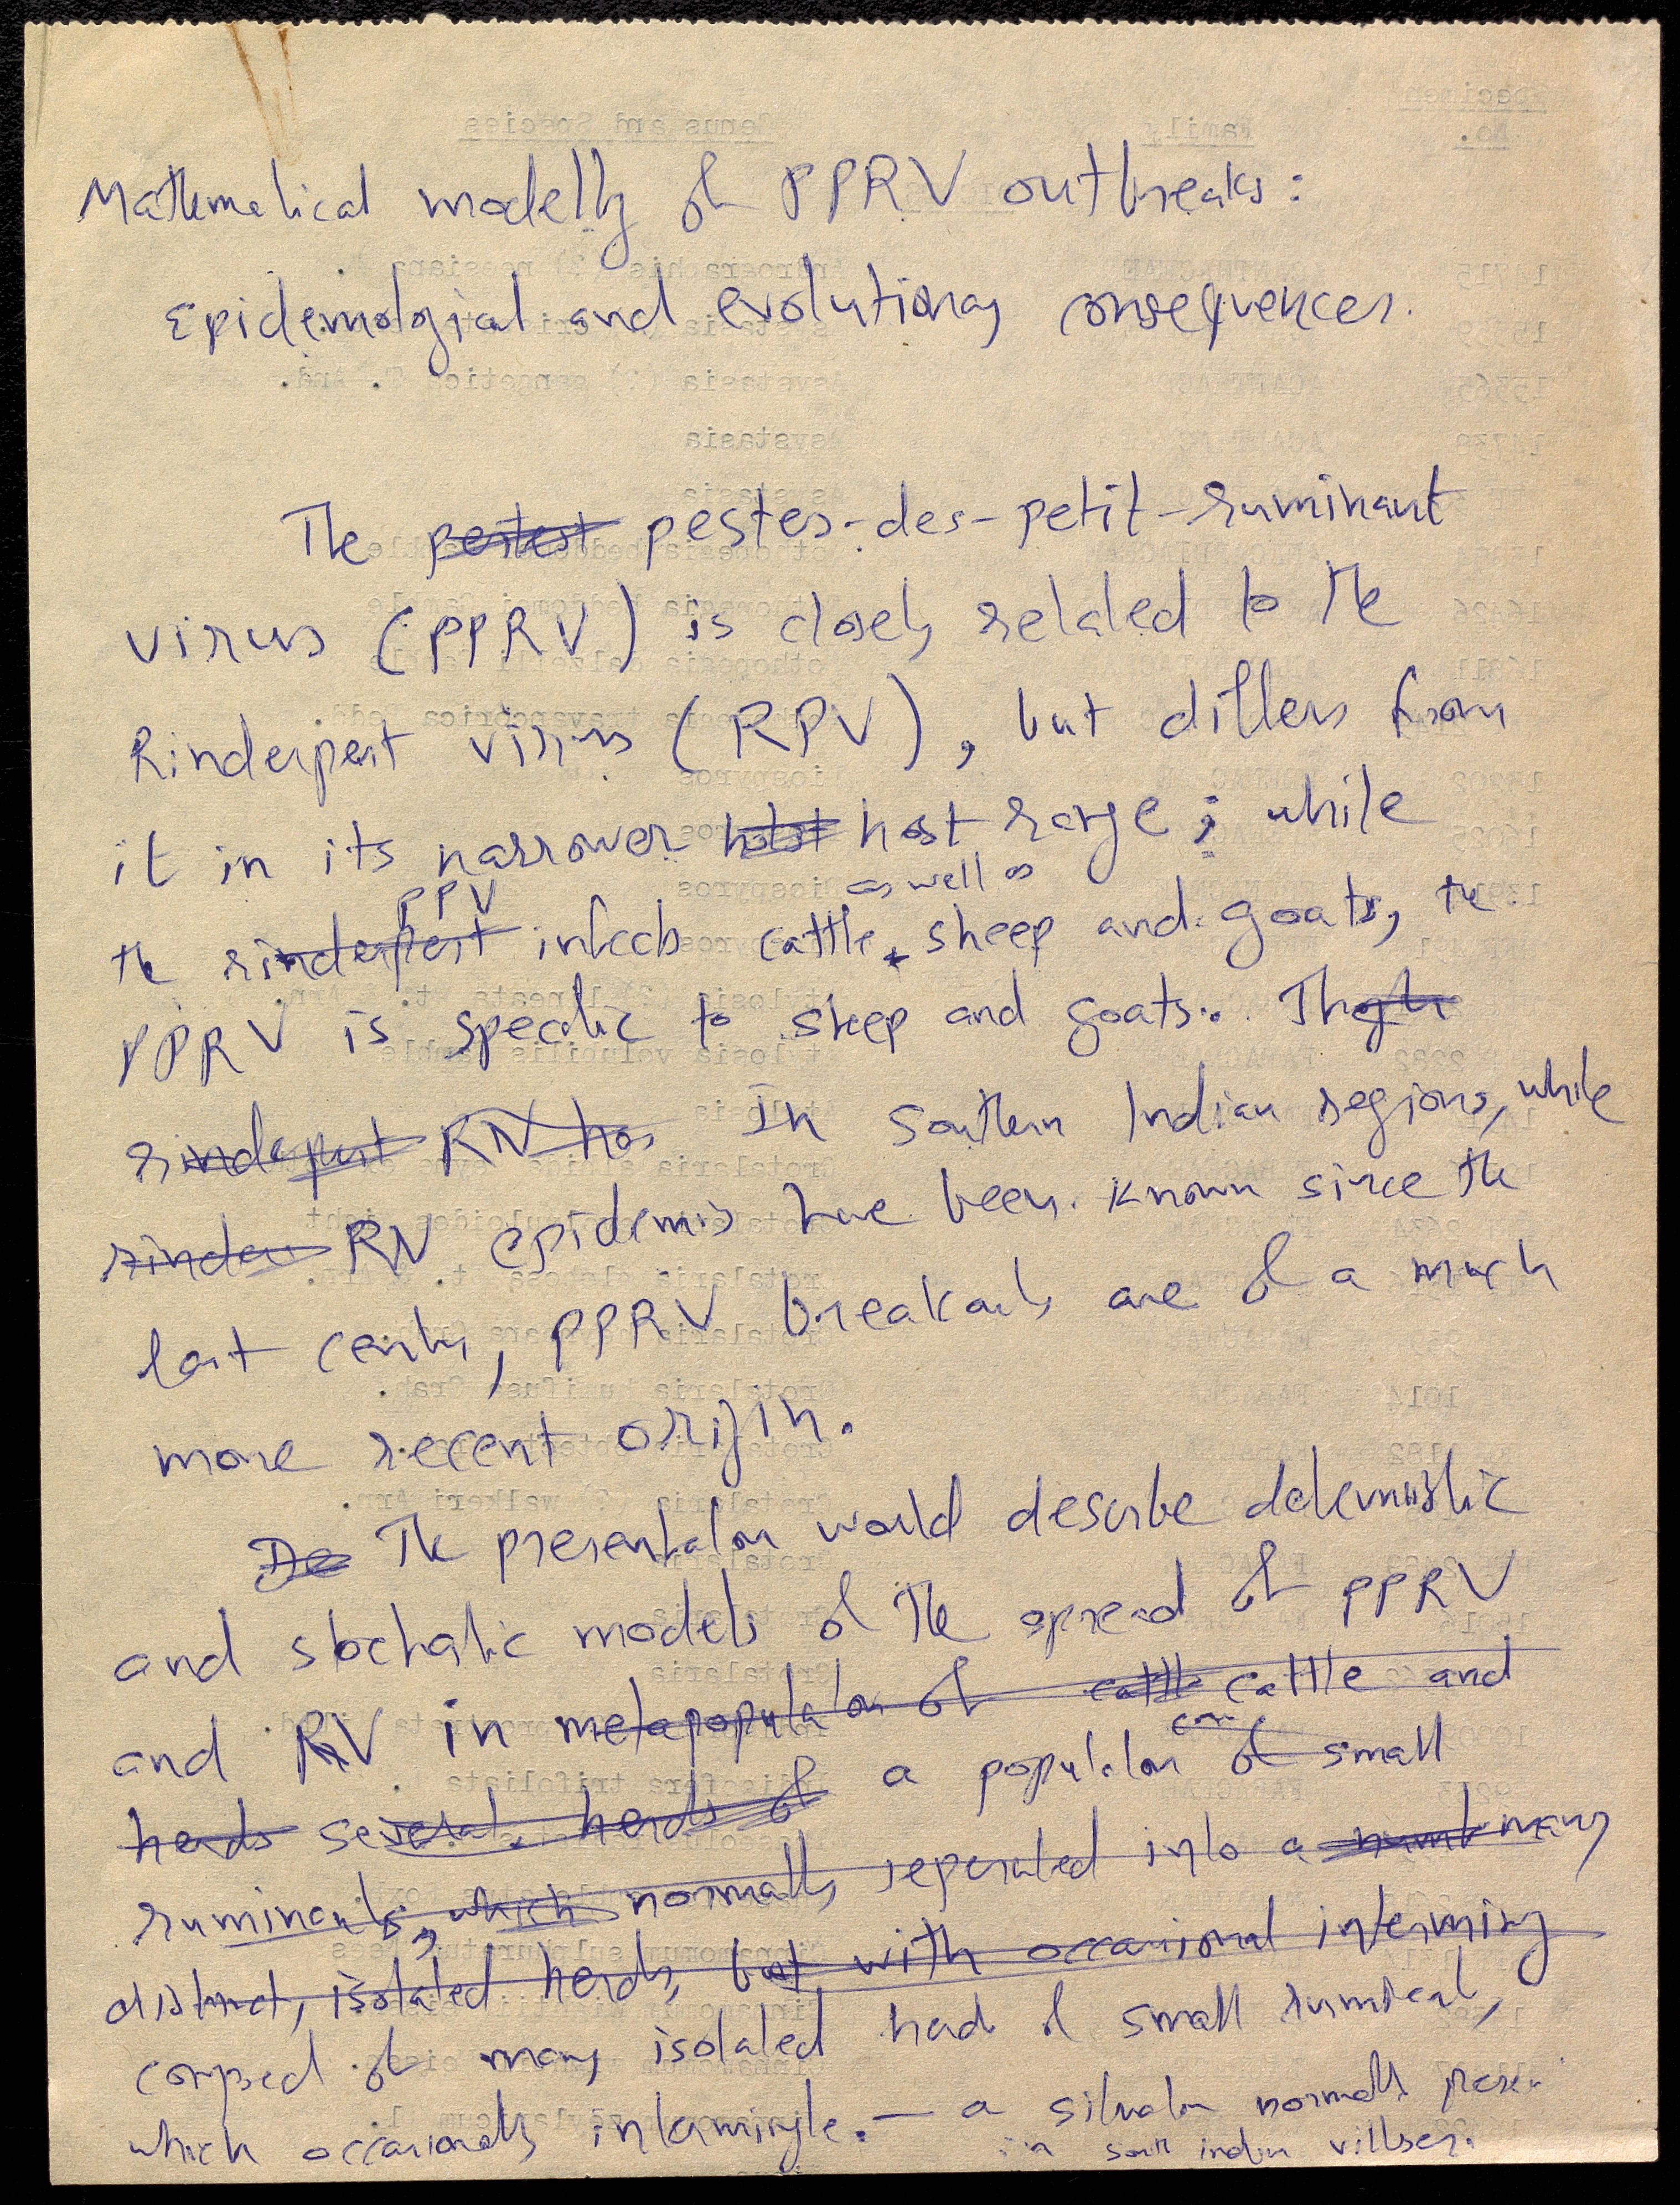 Mathematical modelling of PPRV outbreaks:
Epidemolgial and evolutionary consequences.
The pestest pestes-des-petit-ruminant
virus (PPRV) is closely related to the
Rinderpest virus (RPV), but differs from
it in its narrower hobst host range; while
PPV as well as
the rinderpest infects cattle, sheep and goats, the
PPRV is specific to sheep and goats. Though
rinderpest RN has In Southern Indian regions, while
rinder RN epidemis have been known since the
last century, PPRV breakouts are of a much
more recent origin.
De The presentation would describe deterministic
and stochatic models of the spread of PPRV
and RV in metapopulation of cattle cattle and
herds several herds of a population of small
ruminants, which normally seperated into a numb many
distinct, isolated herds, but with occasional interming
compsed of many isolated herd of small ruminant,
which occasionally intermingle. — a situation normally
in south indian villages.